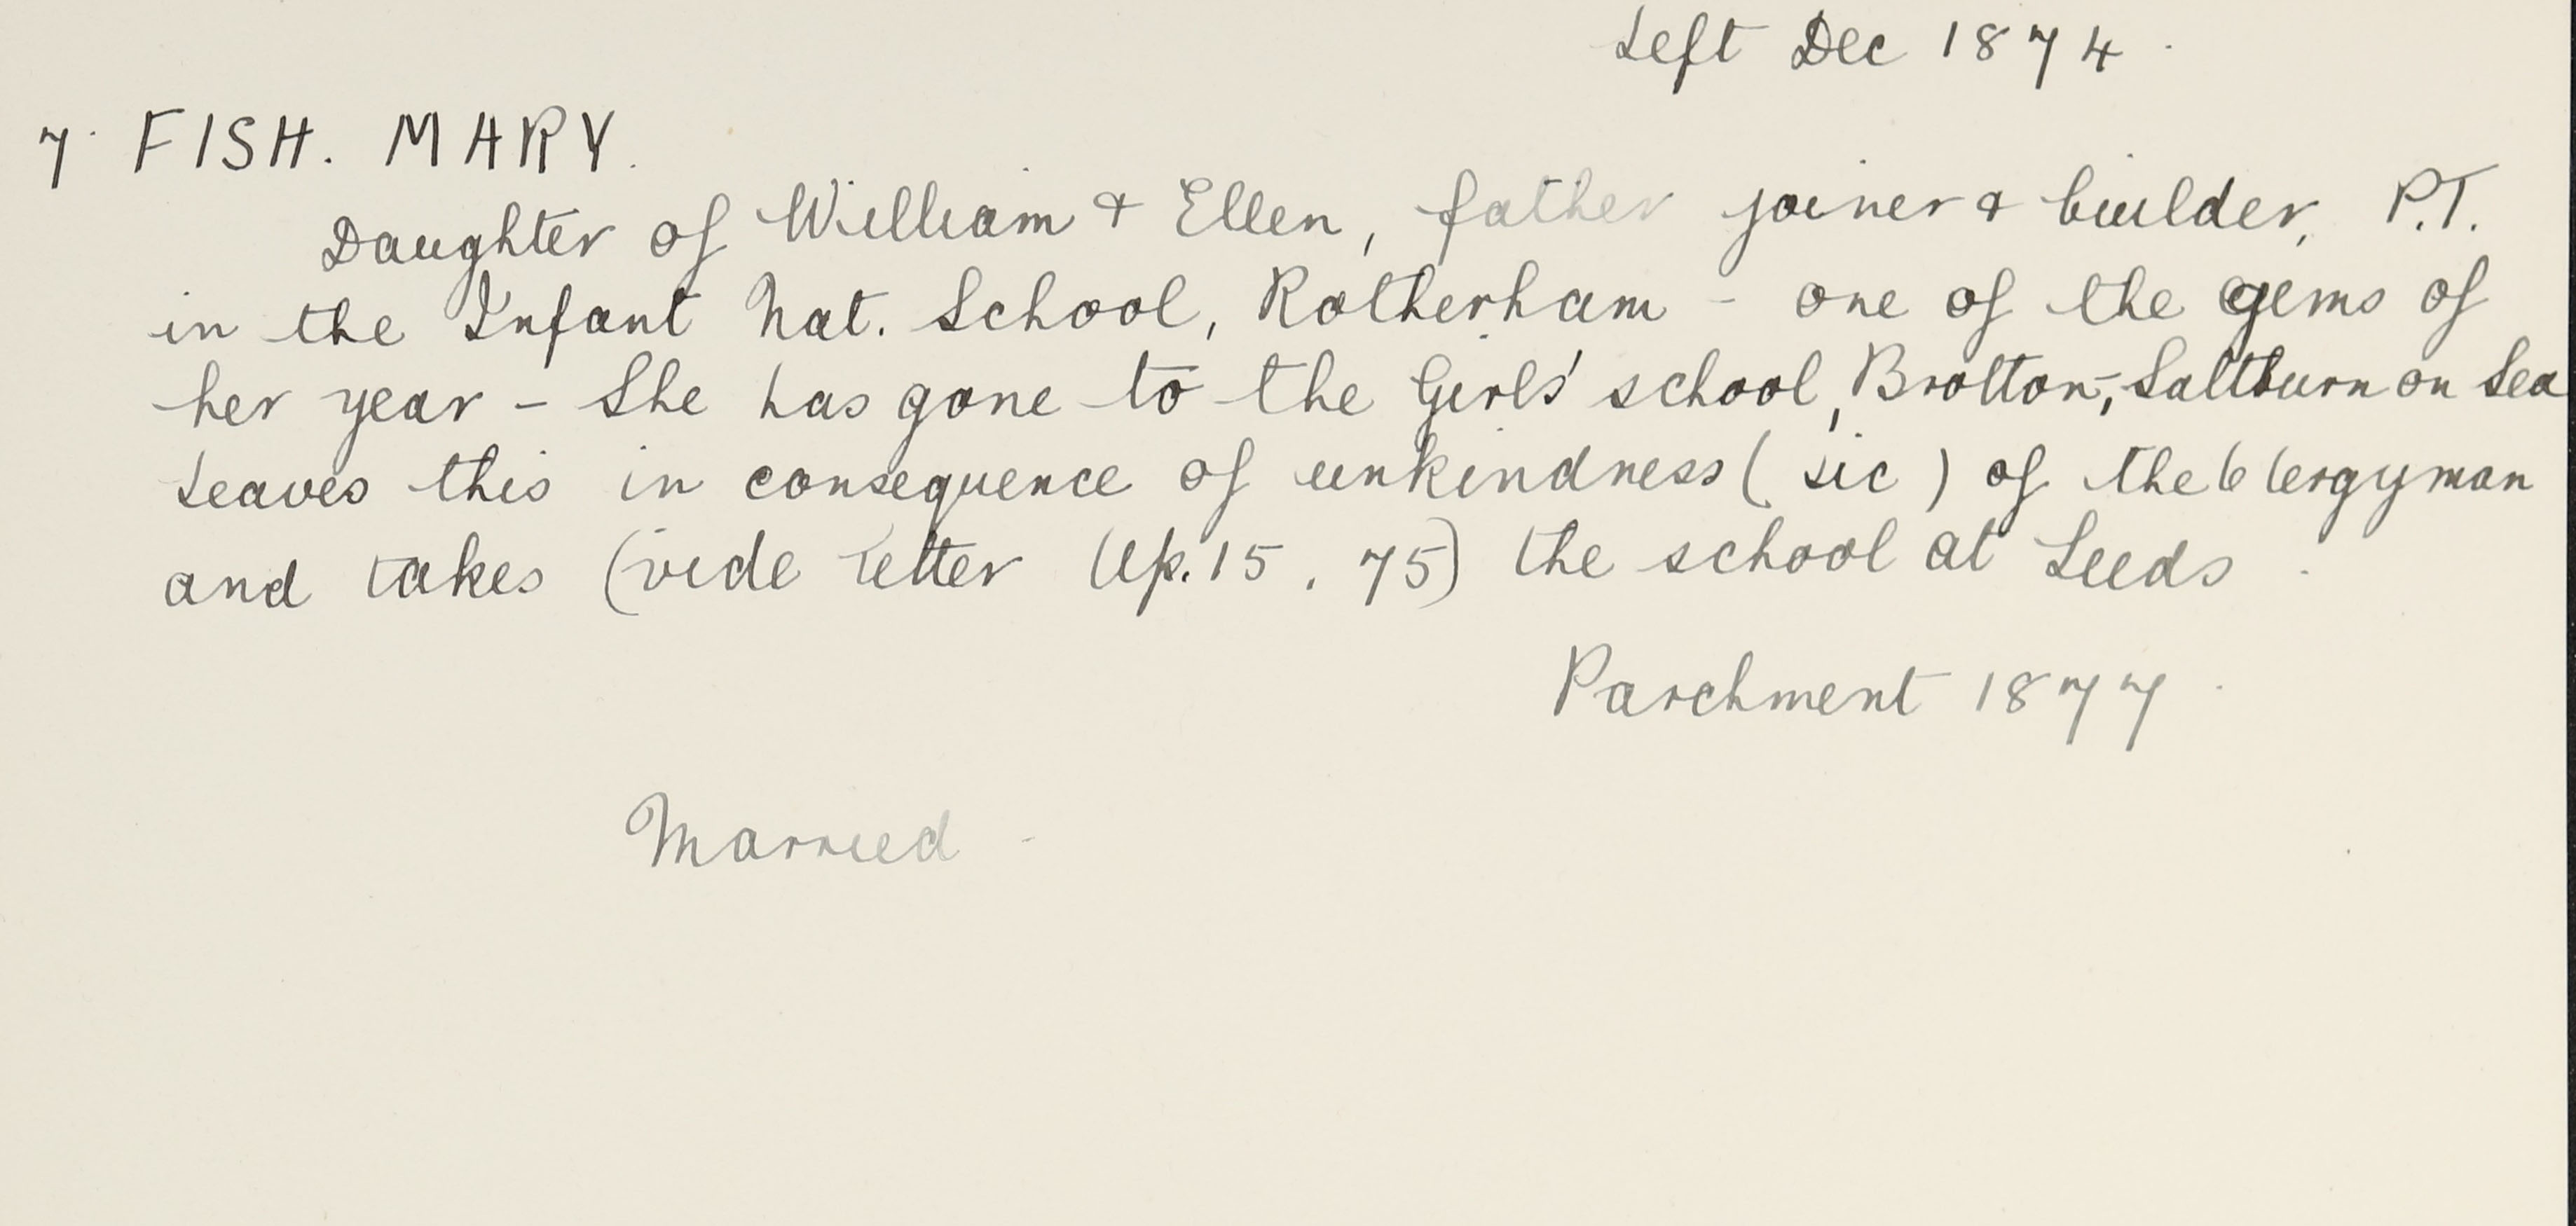 Left Dec 1874.
7. FISH. MARY.
Daughter of William & Ellen, father joiner & builder, P.T.
in the Infant Nat. School, Rotherham - one of the gems of
her year - She has gone to the Girls' school, Brotton, Saltburn on Sea
Leaves this in consequence of unkindness (sic) of the Clergyman
and takes (vide letter Ap. 15. 75) the school at Leeds.
Parchment 1877.
Married -